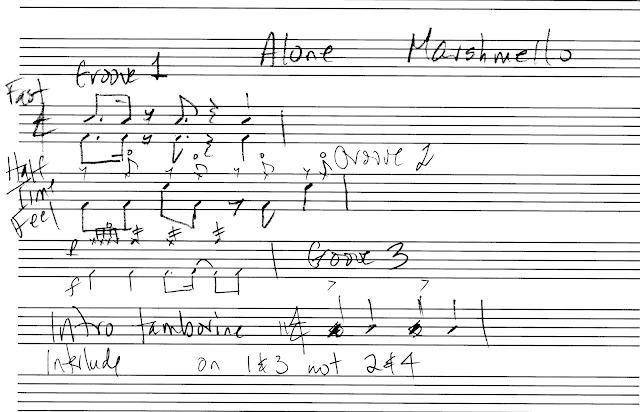 Alone Marshmello
Groove 1
Fast
Half Groove 2
Time
Feel
p
Goove 3
f
Intro tamborine
Interlude on 1&3 not 2&4